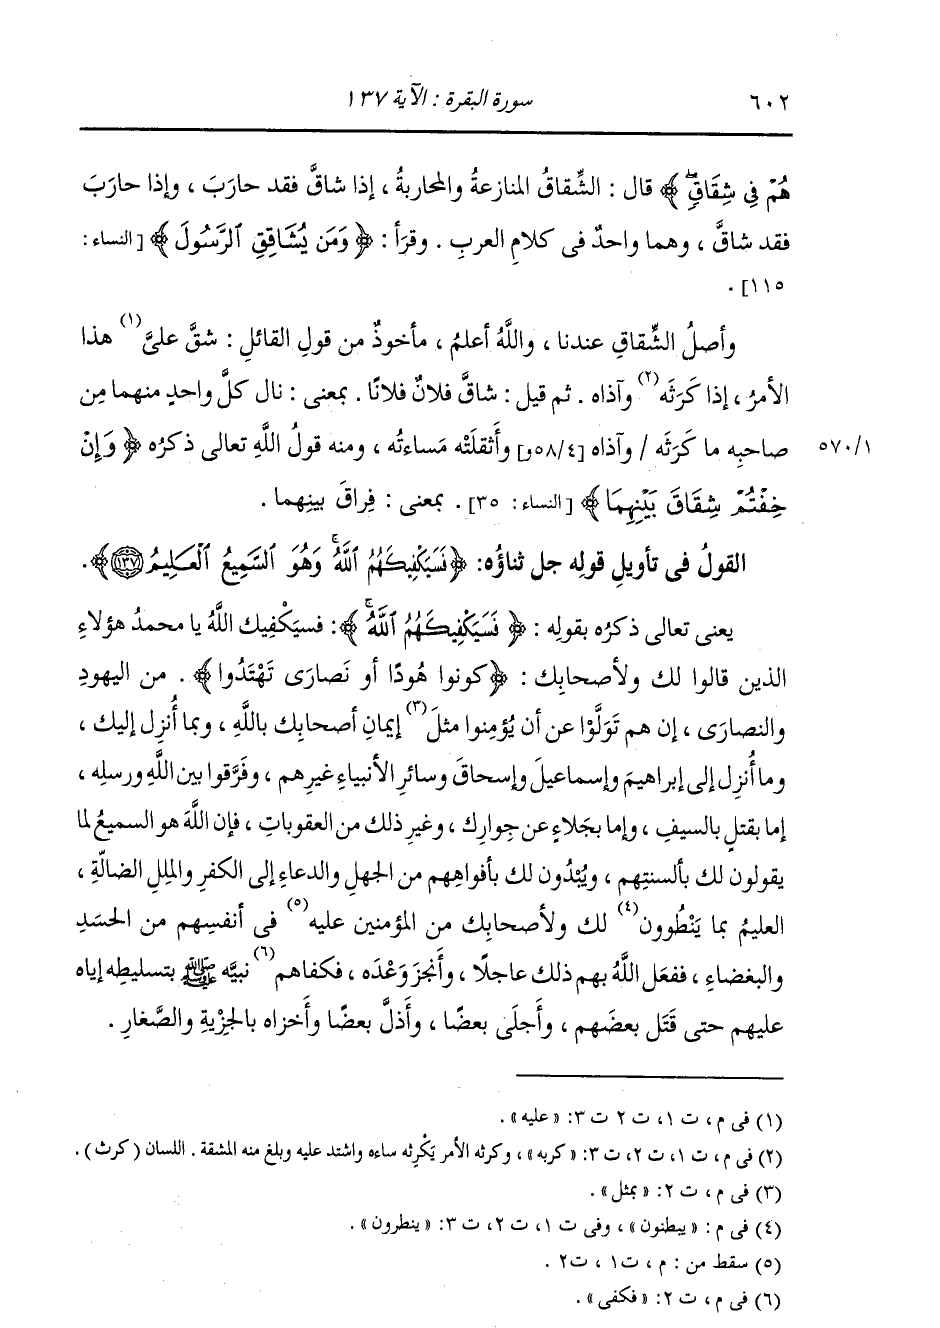 ٦٠٢ سورة البقرة : الآية ١٣٧
هُمْ فِي شِقَاقٍ ﴾ قال : الشِّقاقُ المنازعةُ والمحاربةُ ، إذا شاقَّ فقد حارَبَ ، وإذا حارَبَ
فقد شاقَّ ، وهما واحدٌ فى كلامِ العربِ . وقرَأ : ﴿ وَمَن يُشَاقِقِ ٱلرَّسُولَ ﴾ [ النساء :
١١٥] .
وأصلُ الشِّقاقِ عندنا ، واللَّهُ أعلمُ ، مأخوذٌ من قولِ القائلِ : شقَّ علىَّ (١) هذا
الأمرُ ، إذا كَرَثَه (٢) وآذاه . ثم قيل : شاقَّ فلانٌ فلانًا . بمعنى : نال كلُّ واحدٍ منهما مِن
صاحبِه ما كَرَثَه / وآذاه [٥٨/٤و] وأَثقلَتْه مَساءتُه ، ومنه قولُ اللَّهِ تعالى ذكرُه ﴿ وَإِنْ ٥٧٠/١
خِفْتُمْ شِقَاقَ بَيْنِهِمَا ﴾ [ النساء : ٣٥] . بمعنى : فِراقَ بينِهما .
القولُ فى تأويلِ قولِه جل ثناؤُه: ﴿ فَسَيَكْفِيكَهُمُ ٱللَّهُ وَهُوَ ٱلسَّمِيعُ ٱلْعَلِيمُ ١٣٧﴾.
يعنى تعالى ذكرُه بقولِه : ﴿ فَسَيَكْفِيكَهُمُ ٱللَّهُ ﴾ : فسيَكْفِيك اللَّهُ يا محمدُ هؤلاءِ
الذين قالوا لك ولأصحابِك : ﴿كونوا هُودًا أو نَصارَى تَهْتَدُوا﴾ . من اليهودِ
والنصارَى ، إن هم تَوَلَّوْا عن أن يُؤمِنوا مثلَ (٣) إيمانِ أصحابِك باللَّهِ ، وبما أُنزِل إليك ،
وما أُنزِل إلى إبراهيمَ وإسماعيلَ وإسحاقَ وسائرِ الأنبياءِ غيرِهم ، وفَرَّقوا بين اللَّهِ ورسلِه ،
إما بقتلٍ بالسيفِ ، وإما بجَلاءٍ عن جِوارِك ، وغيرِ ذلك من العقوباتِ ، فإن اللَّهَ هو السميعُ لما
يقولون لك بألسنتِهم ، ويُبْدُون لك بأفواهِهم من الجهلِ والدعاءِ إلى الكفرِ والمِللِ الضالَّةِ ،
العليمُ بما يَنْطُوون (٤) لك ولأصحابِك من المؤمنين عليه (٥) فى أنفسِهم من الحَسَدِ
والبغضاءِ ، ففعَل اللَّهُ بهم ذلك عاجلًا ، وأَنجَزَ وَعْدَه ، فكفاهم (٦) نبيَّه ﷺ بتسليطِه إياه
عليهم حتى قَتَل بعضَهم ، وأَجلَى بعضًا ، وأَذلَّ بعضًا وأَخزاه بالجِزْيةِ والصَّغارِ .
(١) فى م ، ت ١، ت ٢ ت ٣: « عليه » .
(٢) فى م ، ت ١، ت ٢، ت ٣: « كربه » ، وكرثه الأمر يَكْرِثه ساءه واشتد عليه وبلغ منه المشقة . اللسان ( كرث ) .
(٣) فى م ، ت ٢: « بمثل » .
(٤) فى م : « يبطنون » ، وفى ت ١، ت ٢، ت ٣: « ينطرون » .
(٥) سقط من : م ، ت١ ، ت٢ .
(٦) فى م ، ت ٢: « فكفى » .